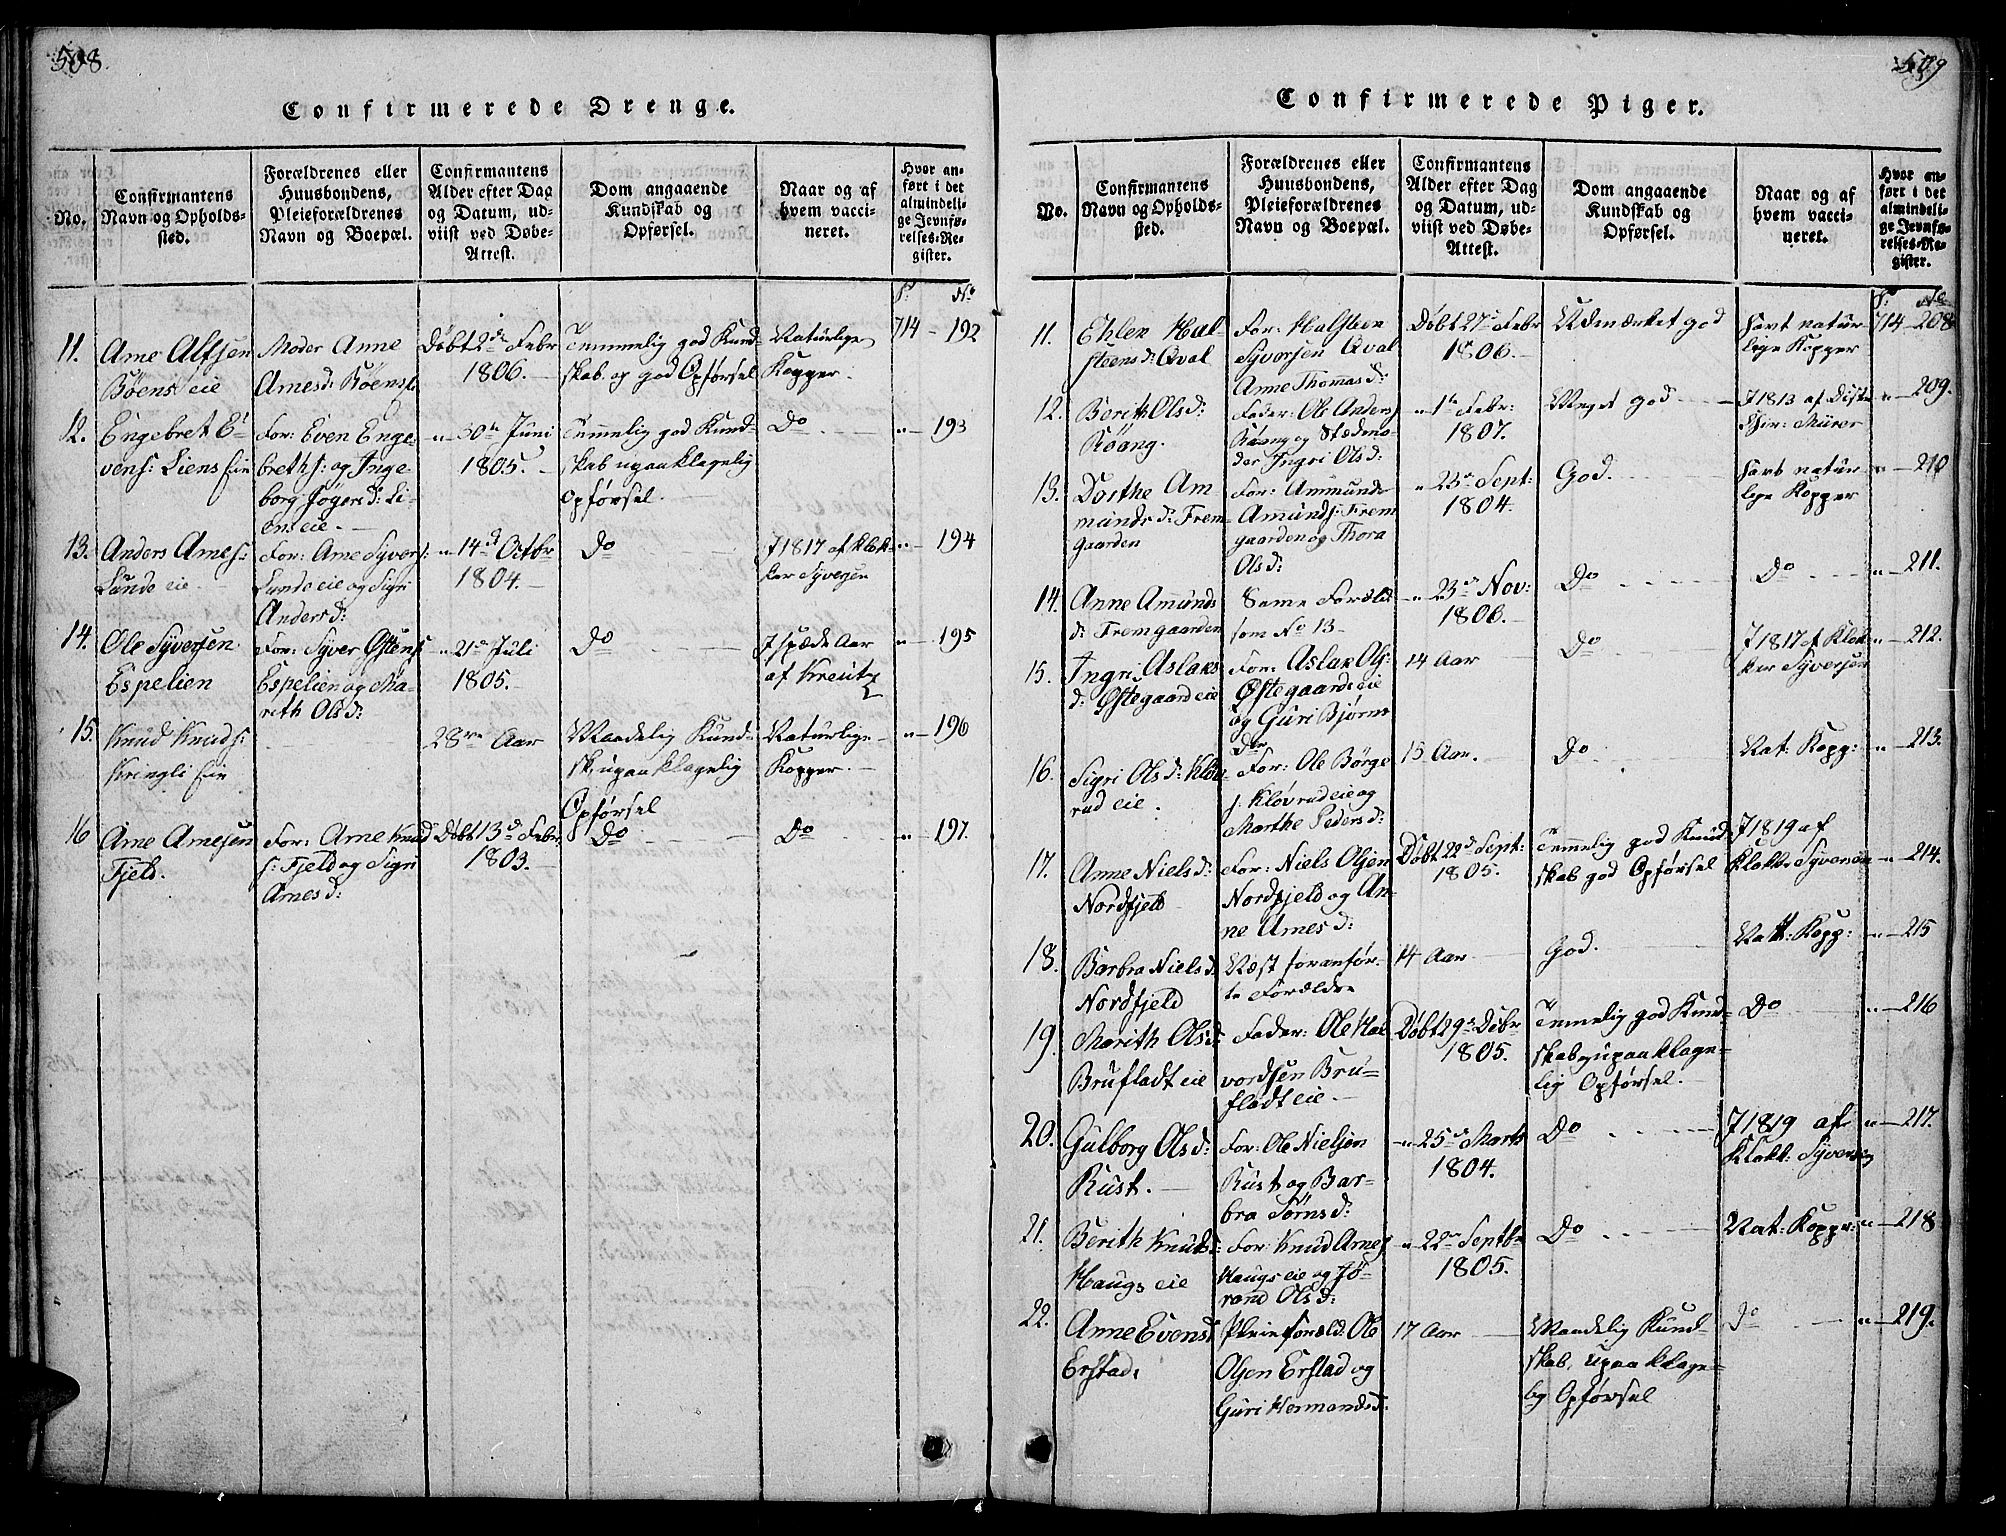 508.
Confirmerede Drenge.
No.
Confirmantens Navn og Opholdssted.
Forældrenes eller Huusbondens, Pleieforældrenes Navn og Boepæl.
Confirmantens Alder efter Dag og Datum, udviist ved Døbe-Attest.
Dom angaaende Kundskab og Opførsel.
Naar og af hvem vaccineret.
Hvor anført i det almindelige Jevnførelses-Register.
S: No
11. Arne Alfsen
Bøens eie
Moder Anne
Arnesd: Bøens
Døbt 2de Febr
1806.
Temmelig god Kund-
skab og god Opførsel
Naturlige
Kopper.
714 - 192
12. Engebret E-
vens: Liens Eie
For: Even Enge
breths: og Inge-
borg Jøgersd: Li-
ens eie.
" 30te Juni
1805.
Temmelig god Kund-
skab upaaklagelig
Opførsel.
Do
" - 193
13. Anders Arnes:
Lunde eie
For: Arne Syvers:
Lunde eie og Sigri
Andersd:
" 14d Octbr
1804.
Do
I 1817 af Klok-
ker Syversen
" - 194
14. Ole Syversen
Espelien
For: Syver Østens
Espelien og Ma-
rith Olsd:
" 21de Juli
1805.
Do
I spæde Aar
af Kreutz
" - 195
15. Knud Knuds:
Kringli Eie
28 Aar
Maadelig Kund-
sk: upaaklagelig
Opførsel
Naturlige
Kopper.
" - 196
16 Arne Arnesen
Fjeld.
For: Arne Knud
s: Fjeld og Sigri
Arnesd:
Døbt 13d Febr:
1803.
Do
Do
" 197.
509
Confirmerede Piger.
No.
Confirmantens Navn og Opholdssted.
Forældrenes eller Huusbondens, Pleieforældrenes Navn og Boepæl.
Confirmantens Alder efter Dag og Datum, udviist ved Døbe-Attest.
Dom angaaende Kundskab og Opførsel.
Naar og af hvem vaccineret.
Hvor anført i det almindelige Jevnførelses-Register.
S: No
11. Ehlen Hal-
steensd: Qval
For: Halsteen
Syversen Qval
Anne Thomasd:
Døbt 27d Febr
1806.
Udmærket god
havt natur-
lige Kopper
714 - 208
12. Berith Olsd:
Røang.
Fader: Ole Anders
Røang og Stedmo-
der Ingri Olsd:
" 1te Febr:
1807.
Meget god
I 1813 af Distr
Chir: Mürer
" - 209.
13. Dorthe Am
mundsd: Frem-
gaarden
For: Ammund
Amunds: Frem
gaarden og Thora
Olsd:
" 23de Sept:
1804.
God.
havt natur-
lige Kopper
" - 210
14. Anne Amunds
d: Fremgaarden
Same Foræld:
som No 13
" 23de Nov:
1806.
Do
Do
" - 211.
15. Ingri Aslaks
d: Østegaard eie
For: Aslak Ols:
Østegaards eie
og Guri Bjørns
Dtr
14 Aar
Do
I 1817 af Klok-
ker Syversen
" - 212.
16. Sigri Olsd: Kløv-
rud eie.
For: Ole Børge
s: Kløvrud eie og
Marthe Pedersd:
15 Aar.
Do
Nat: Kopp:
" - 213.
17. Anne Nielsd:
Nordfjeld
For: Niels Olsen
Nordfjeld og An-
ne Arnesd:
Døbt 22d Sept:
1805.
Temmelig god Kund
skab god Opførsel
I 1819 af
Klokk: Syversen
" - 214.
18. Barbra Nielsd:
Nordfjeld
Næst foranfør-
te Forældre
14 Aar
God.
Natt: Kopp:
" - 215
19. Marith Olsd:
Brufladt eie
Fader: Ole Hal
vordsen Bru-
fladt eie.
Døbt 29d Dcbr
1805.
Temmelig god Kund-
skab og upaaklage-
lig Opførsel.
Do
" - 216
20. Gulborg Olsd:
Rust.
For: Ole Nielsen
Rust og Bar-
bra Tørnsd:
" 25de Marts
1804.
Do
I 1819 af
Klokk: Syversen
" - 217.
21. Berith Knutsd:
Haugs eie
For: Knud Arnes
Haugs eie og Jø-
rand Olsd:
" 22de Septbr
1805.
Do
Nat: Kopper
" - 218
22. Anne Evensd
Erstad.
Pleieforæld: Ole
Olsen Erstad og
Guri Hermandsd:
17 Aar
Maadelig Kund-
skab, upaaklage-
lig Opførsel
Do
" - 219.